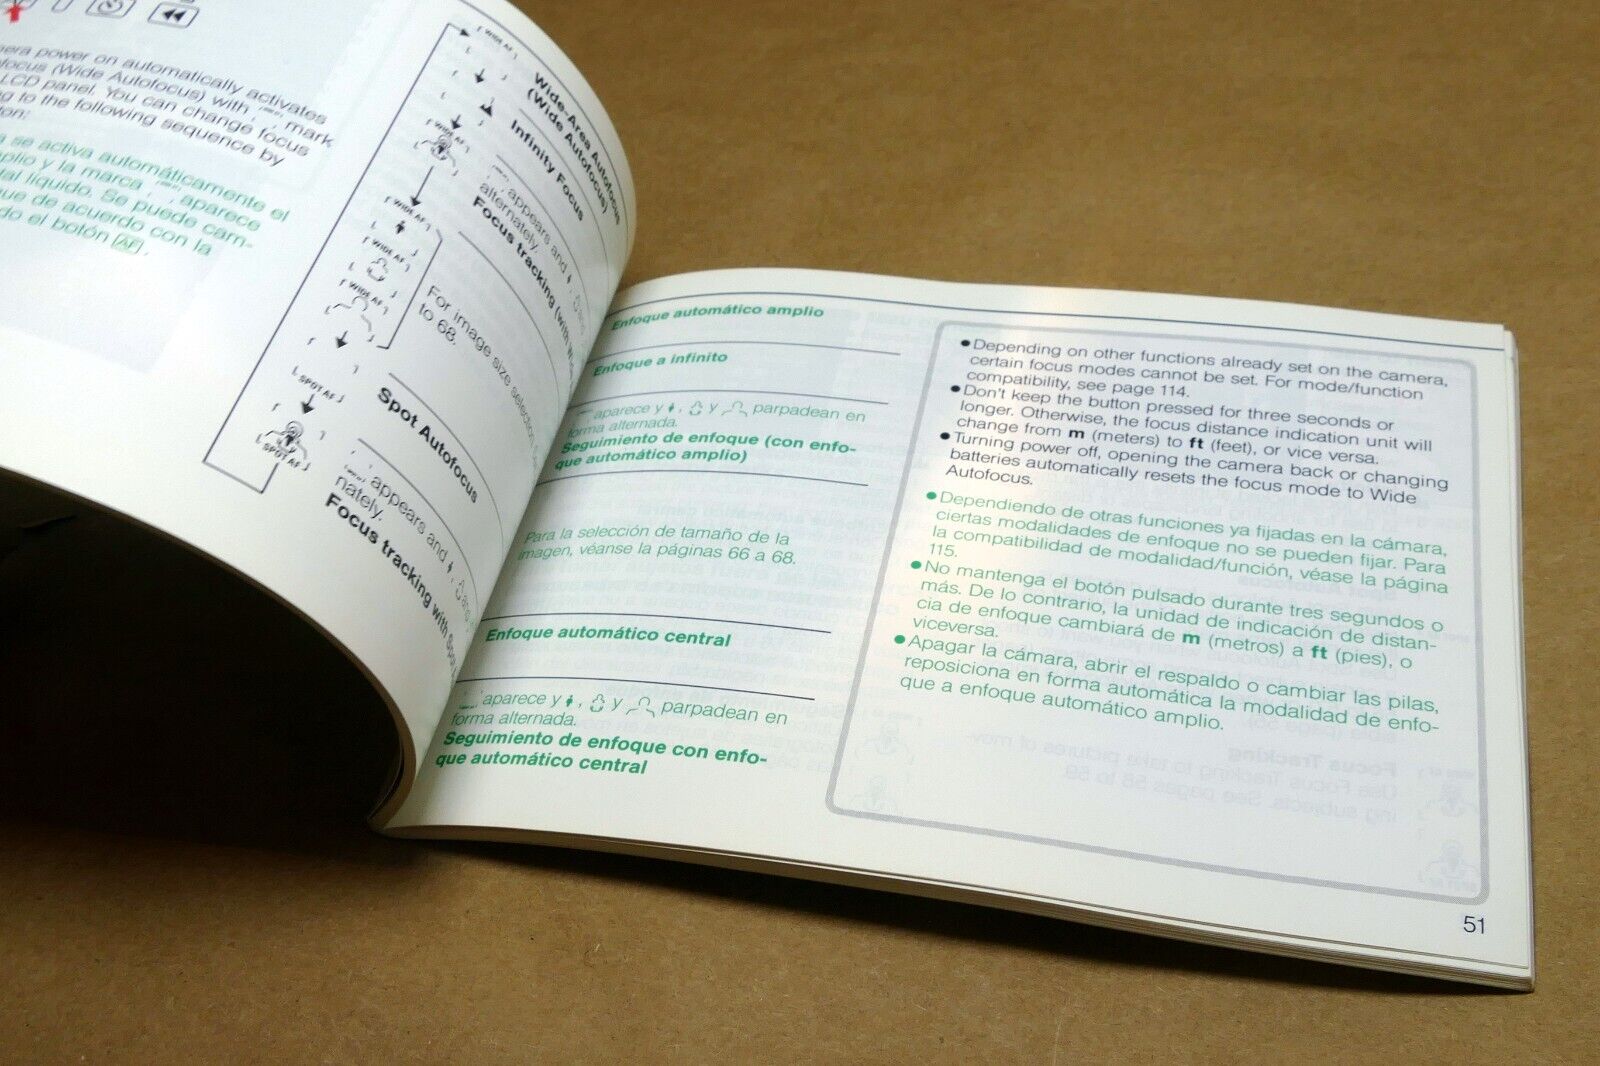 era power on automatically activates
focus (Wide Autofocus) with mark
LCD panel. You can change focus
g to the following sequence by
on:
a se activa automáticamente el
plio y la marca aparece
al líquido. Se puede cam-
ue de acuerdo con la
do el botón AF.
WIDE AF
Wide-Area Autofocus
(Wide Autofocus)
Infinity Focus
WIDE AF
appears and and
alternately.
Focus tracking (with
WIDE AF
WIDE AF
WIDE AF
For image size selection
to 68.
SPOT AF
Spot Autofocus
SPOT AF
appears and and
nately.
Focus tracking with Spot
Enfoque automático amplio
Enfoque a infinito
aparece y , y parpadean en
forma alternada.
Seguimiento de enfoque (con enfo-
que automático amplio)
Para la selección de tamaño de la
imagen, véanse la páginas 66 a 68.
Enfoque automático central
aparece y , y parpadean en
forma alternada.
Seguimiento de enfoque con enfo-
que automático central
●Depending on other functions already set on the camera,
certain focus modes cannot be set. For mode/function
compatibility, see page 114.
●Don't keep the button pressed for three seconds or
longer. Otherwise, the focus distance indication unit will
change from m (meters) to ft (feet), or vice versa.
●Turning power off, opening the camera back or changing
batteries automatically resets the focus mode to Wide
Autofocus.
●Dependiendo de otras funciones ya fijadas en la cámara,
ciertas modalidades de enfoque no se pueden fijar. Para
la compatibilidad de modalidad/función, véase la página
115.
●No mantenga el botón pulsado durante tres segundos o
más. De lo contrario, la unidad de indicación de distan-
cia de enfoque cambiará de m (metros) a ft (pies), o
viceversa.
●Apagar la cámara, abrir el respaldo o cambiar las pilas,
reposiciona en forma automática la modalidad de enfo-
que a enfoque automático amplio.
51